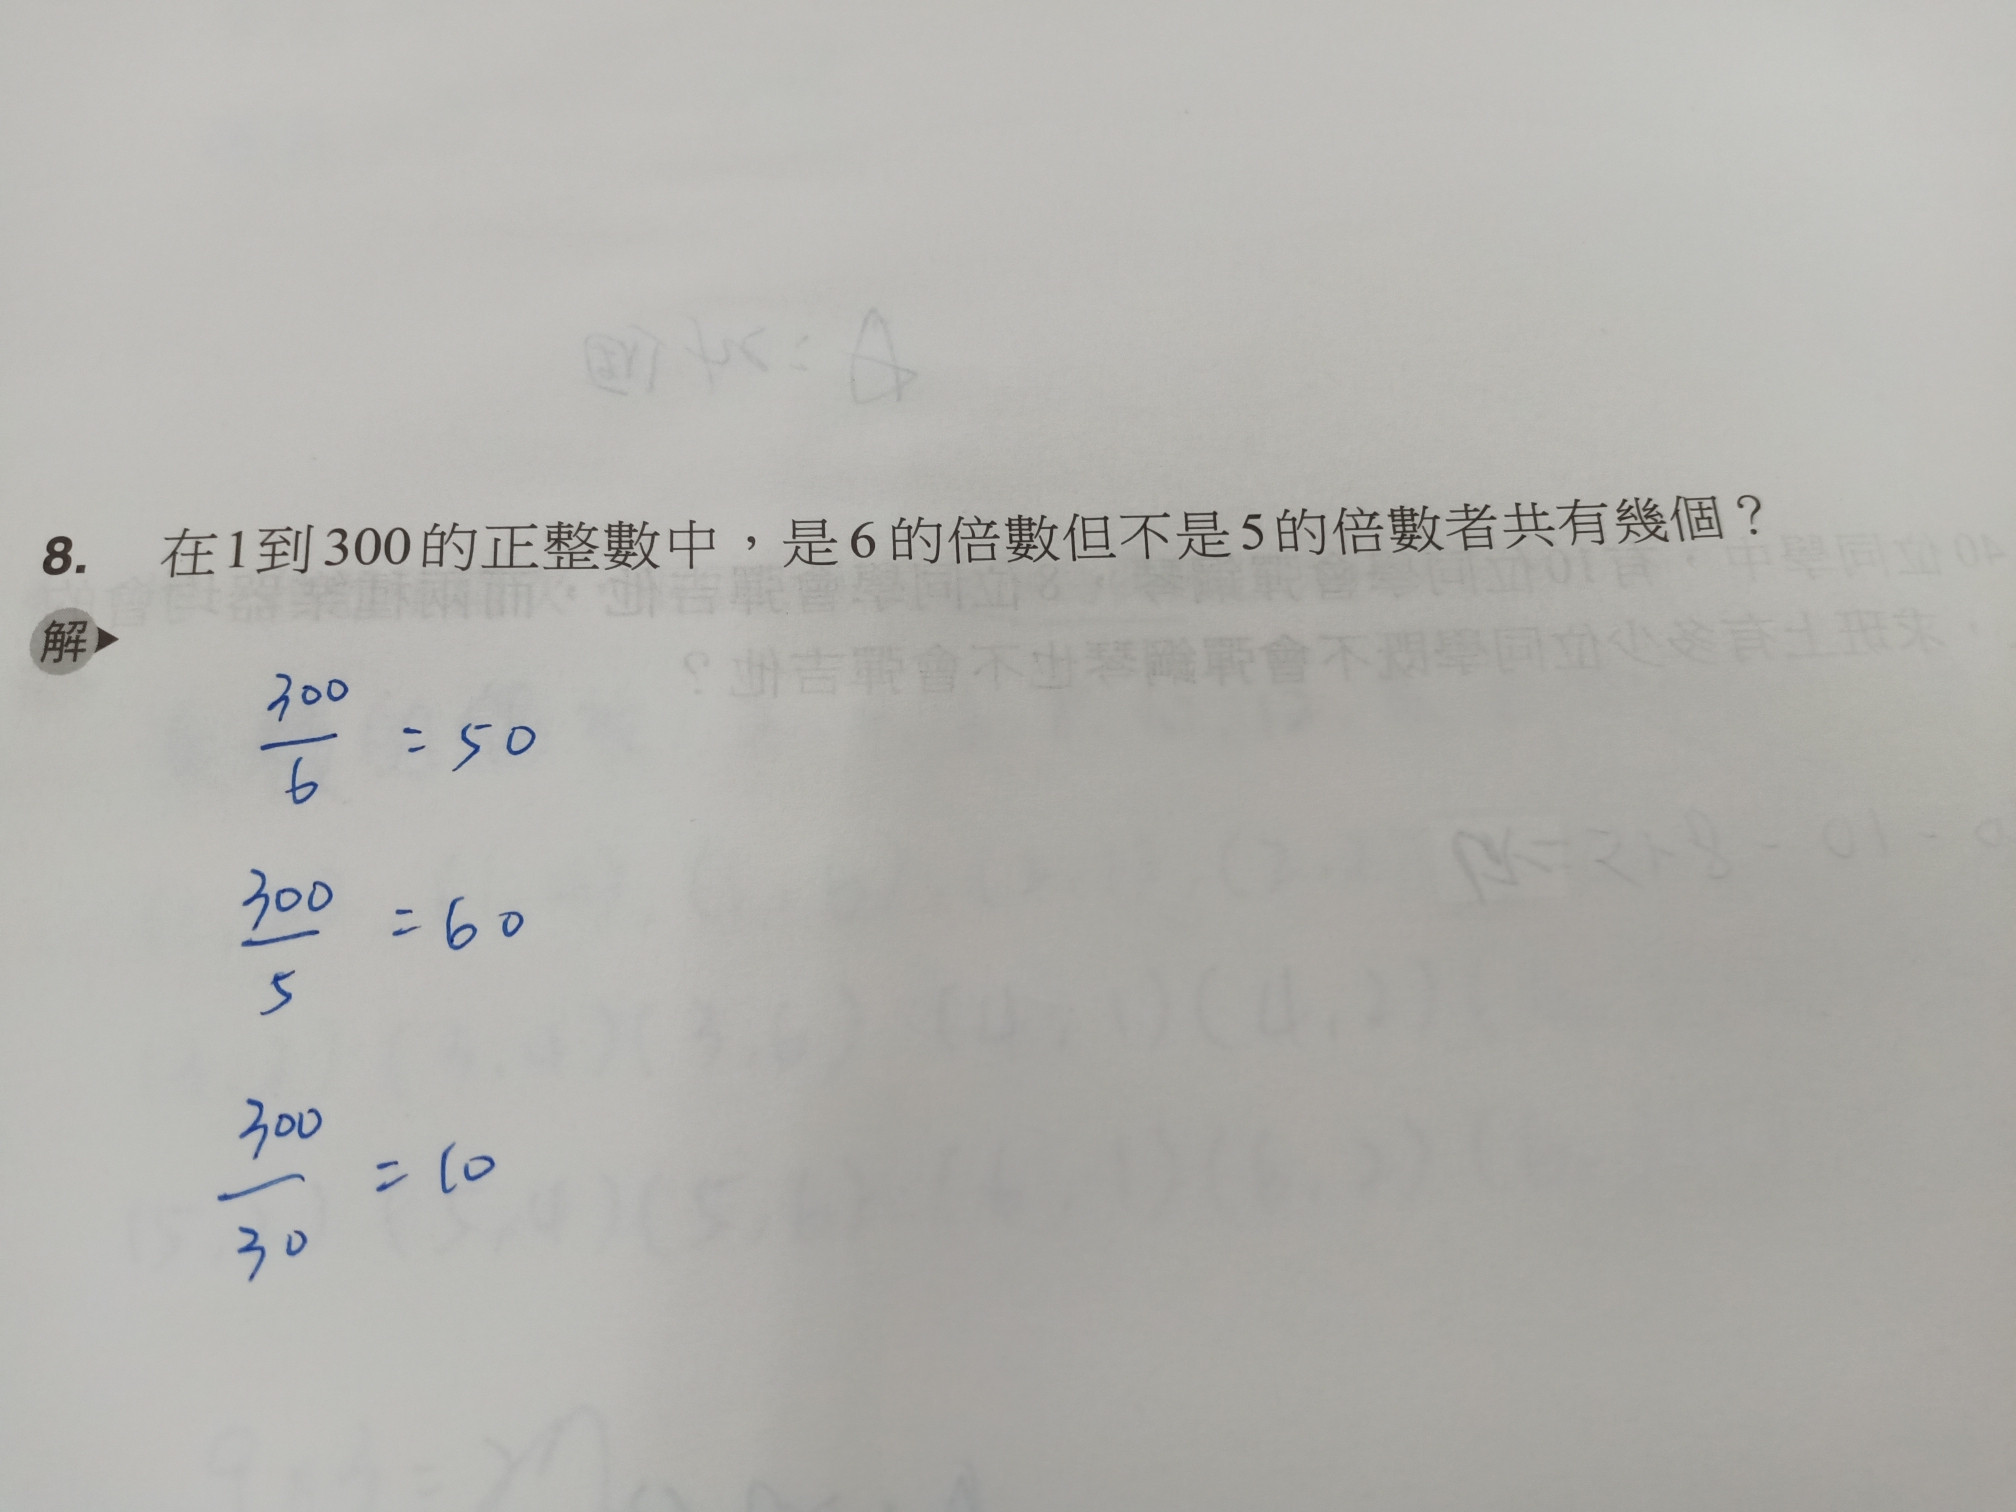 8. 在1到300的正整數中，是6的倍數但不是5的倍數者共有幾個？
解
300/6 = 50
300/5 = 60
300/30 = 10